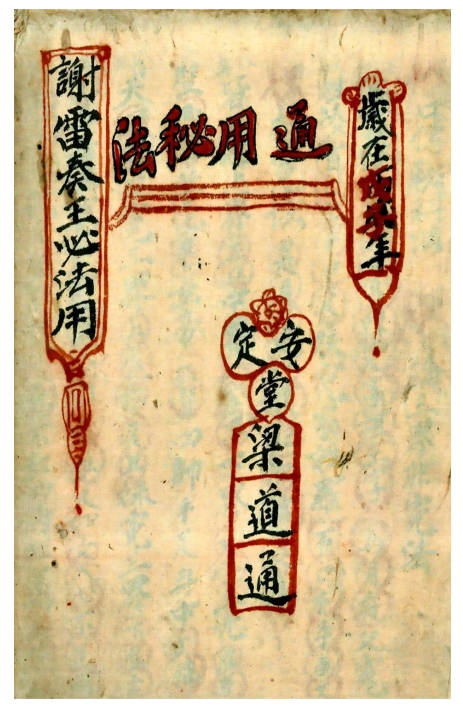 歲在戊子年
通用秘法
安定
堂
梁道通
謝雷奏王必法用